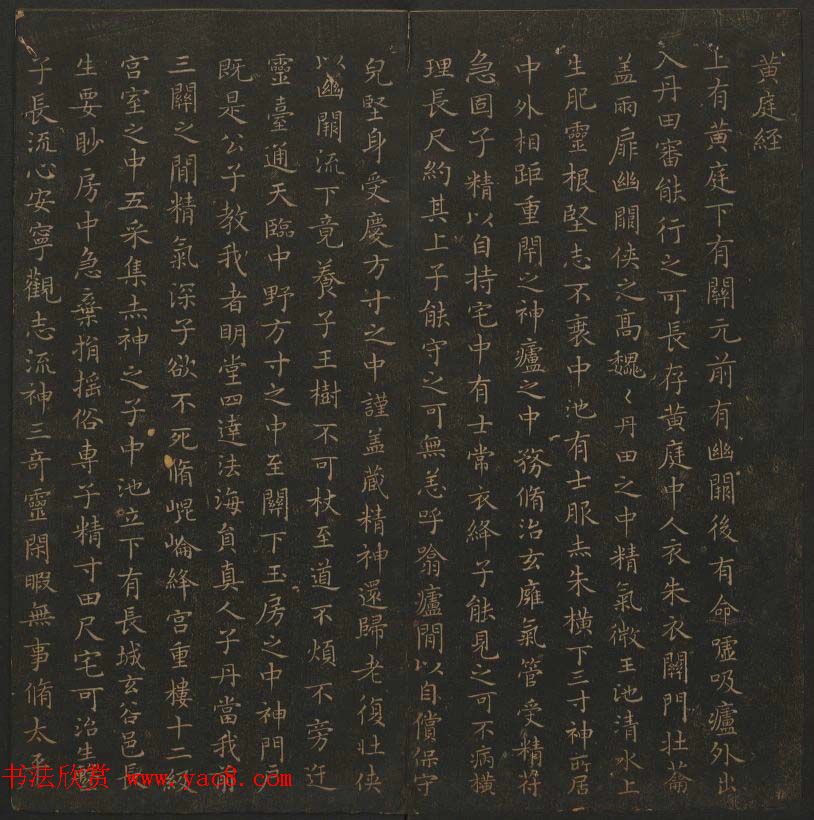 黃庭経
上有黃庭下有關元前有幽闕後有命嘘吸廬外出
入丹田審能行之可長存黃庭中人衣朱衣關門壯籥
盖兩扉幽闕俠之髙巍〻丹田之中精氣微玉池清水上
生肥靈根堅志不衰中池有士服赤朱横下三寸神所居
中外相距重閇之神廬之中務脩治玄廱氣管受精苻
急固子精以自持宅中有士常衣絳子能見之可不病横
理長尺約其上子能守之可無恙呼翕廬閒以自償保守
皃堅身受慶方寸之中謹盖藏精神還歸老復壯俠
以幽闕流下竟養子玉樹不可杖至道不煩不旁迕
靈臺通天臨中野方寸之中至關下玉房之中神門户
既是公子教我者明堂四達法海負真人子丹當我前
三關之閒精氣深子欲不死脩崐崘絳宫重樓十二級
宫室之中五采集赤神之子中池立下有長城玄谷邑長
生要眇房中急棄捐揺俗専子精寸田尺宅可治生繫
子長流心安寧觀志流神三奇靈閑暇無事脩太平
书法欣赏 www.yac8.com